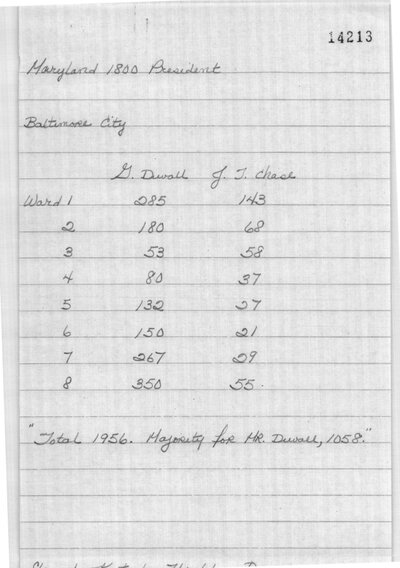 14213
Maryland 1800 President
Baltimore City
G. Duvall J. T. Chase
Ward 1 285 143
2 180 68
3 53 58
4 80 37
5 132 27
6 150 21
7 267 29
8 350 55.
"Total 1956. Majority for Mr. Duvall, 1058."